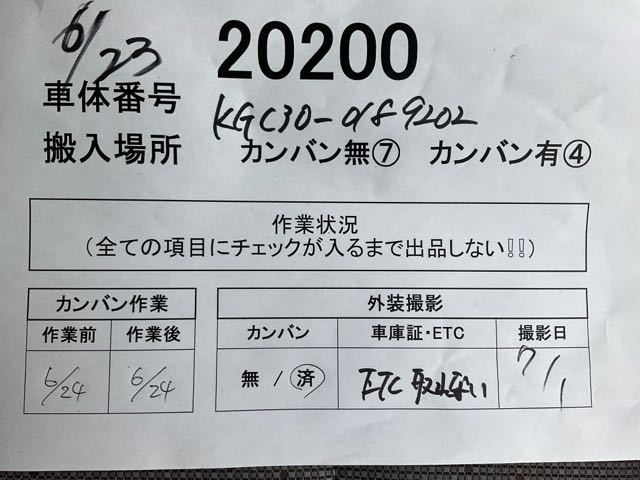 6/23
20200
車体番号 KGC30-0189202
搬入場所 カンバン無⑦ カンバン有④
作業状況
(全ての項目にチェックが入るまで出品しない!!)
カンバン作業 外装撮影
作業前 作業後 カンバン 車庫証・ETC 撮影日
6/24 6/24 無 / 済 ETC取れない 7/1